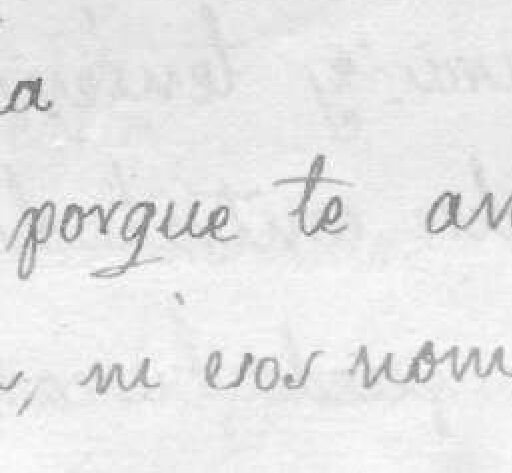 a
porque te an
, ni esos nom